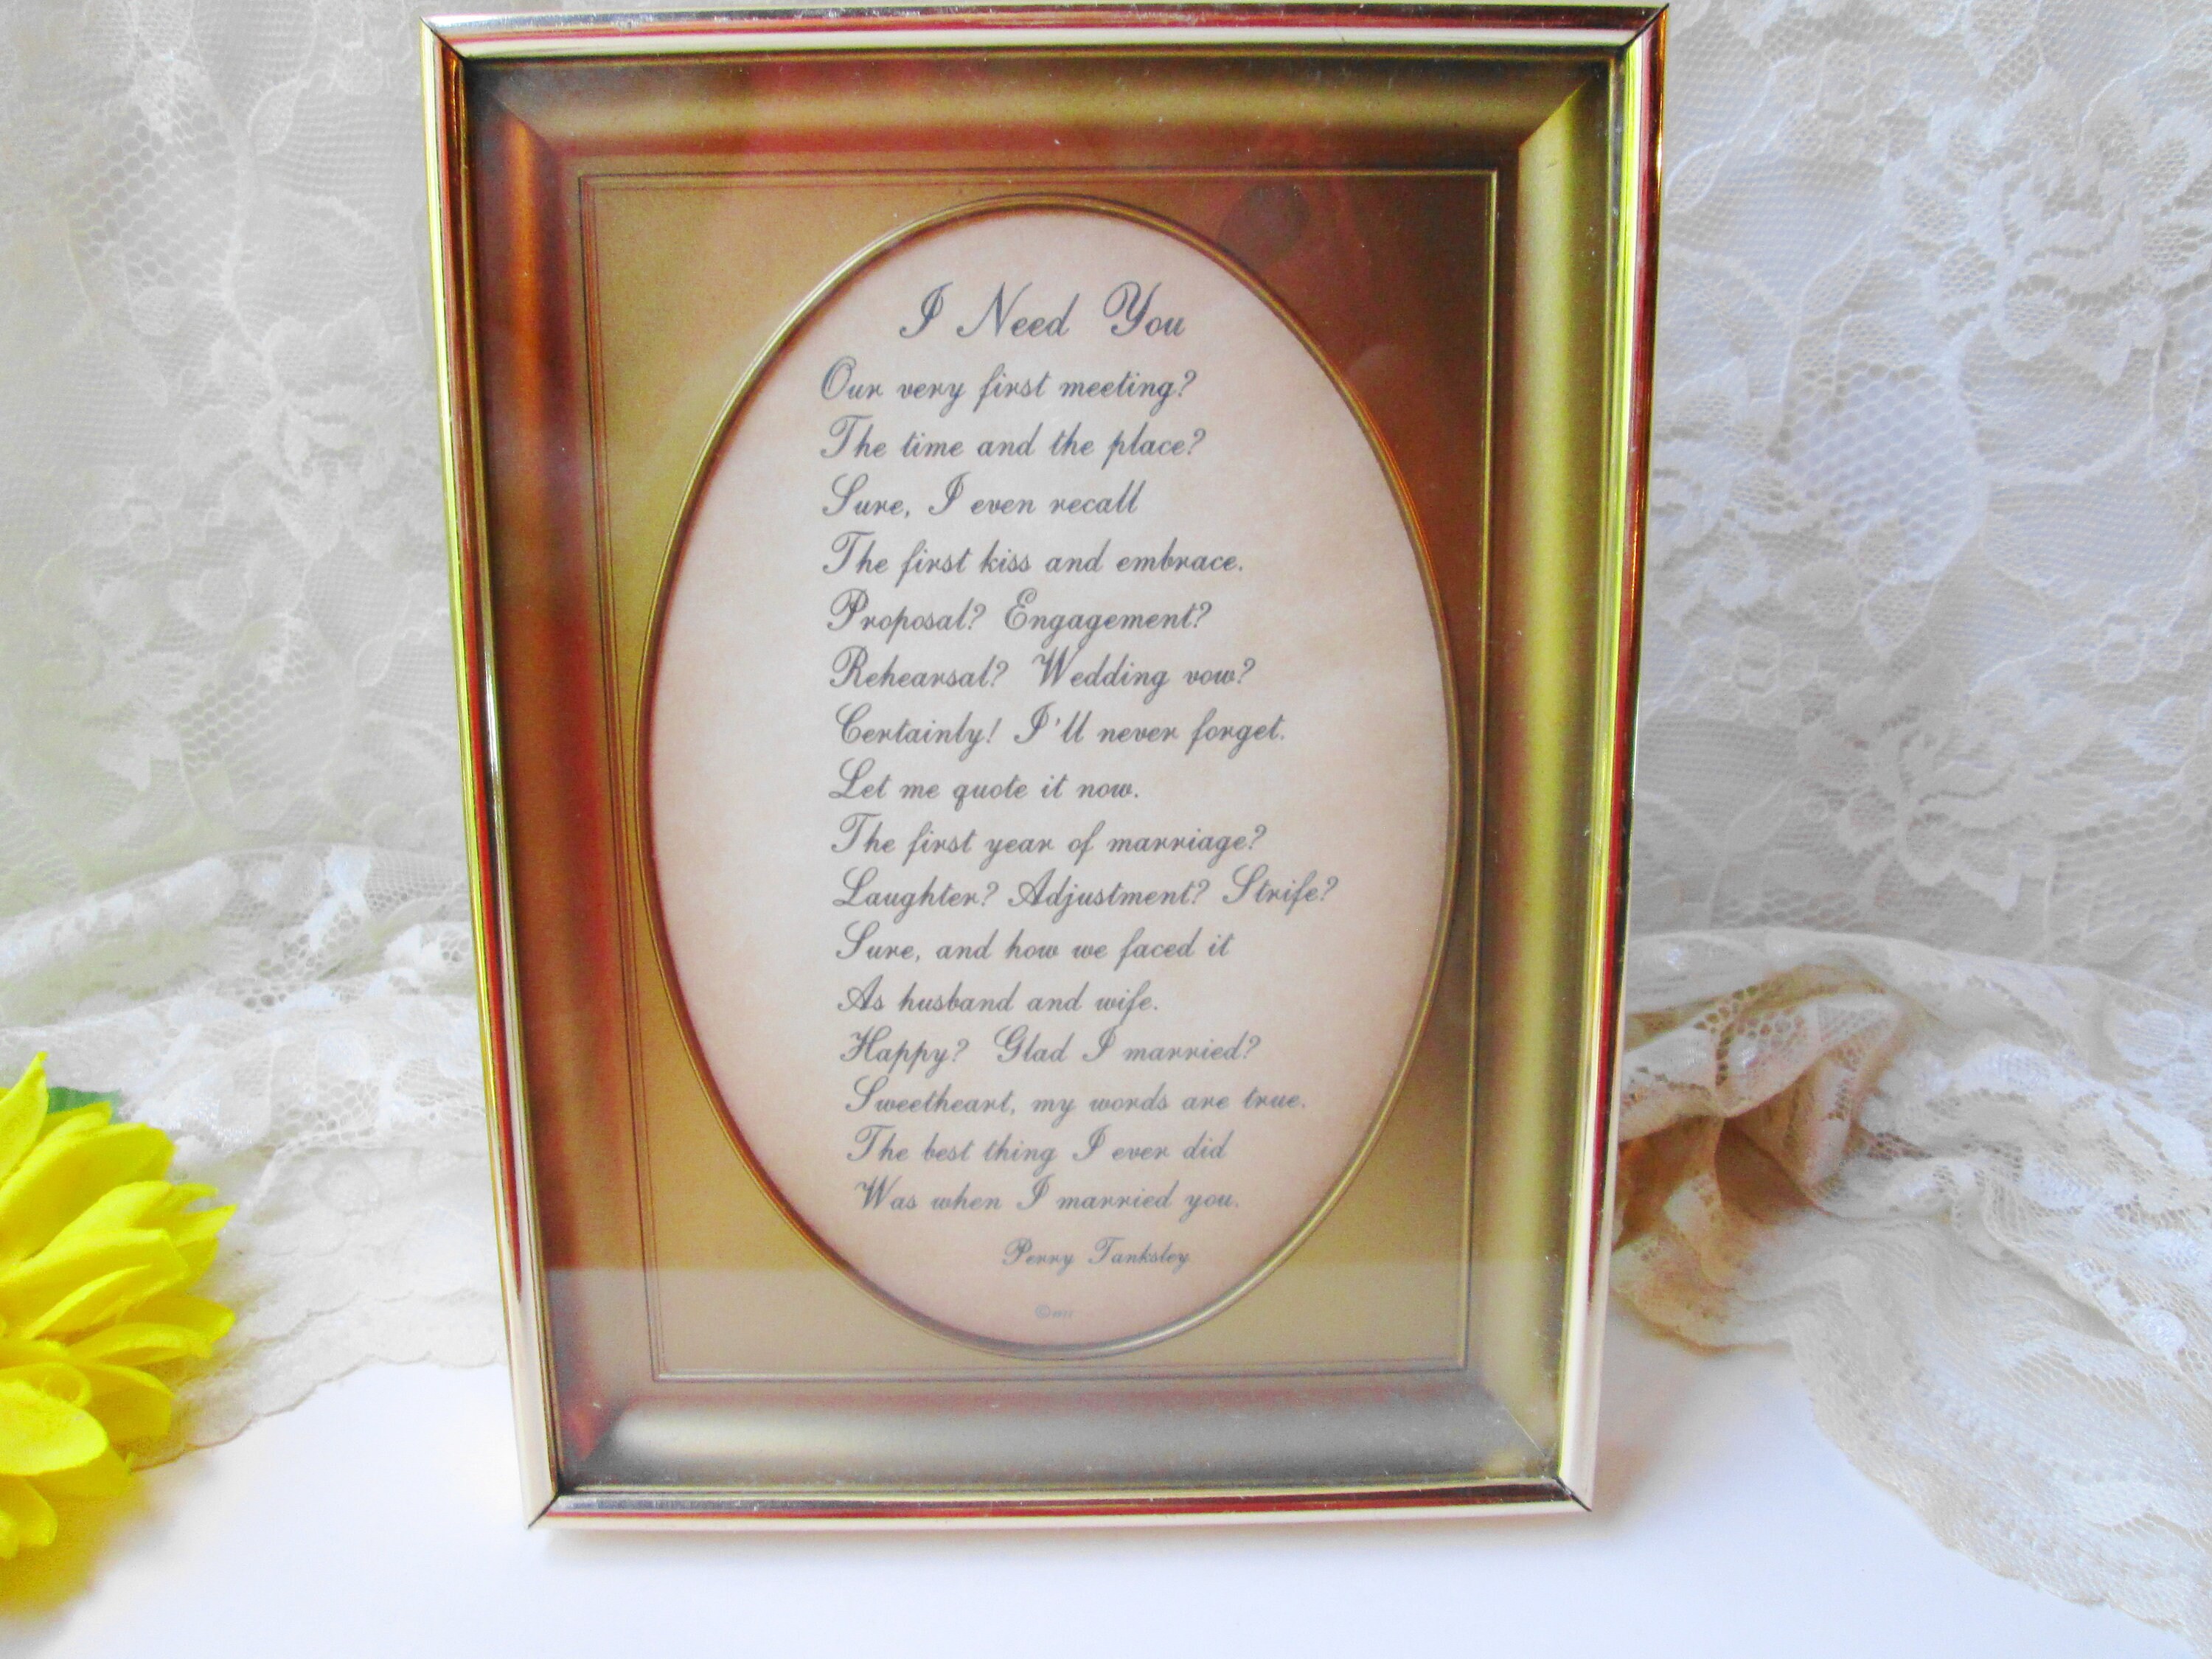 I Need You
Our very first meeting?
The time and the place?
Sure, I even recall
The first kiss and embrace.
Proposal? Engagement?
Rehearsal? Wedding vow?
Certainly! I'll never forget.
Let me quote it now.
The first year of marriage?
Laughter? Adjustment? Strife?
Sure, and how we faced it
As husband and wife.
Happy? Glad I married?
Sweetheart, my words are true.
The best thing I ever did
Was when I married you.
Perry Tanksley
©